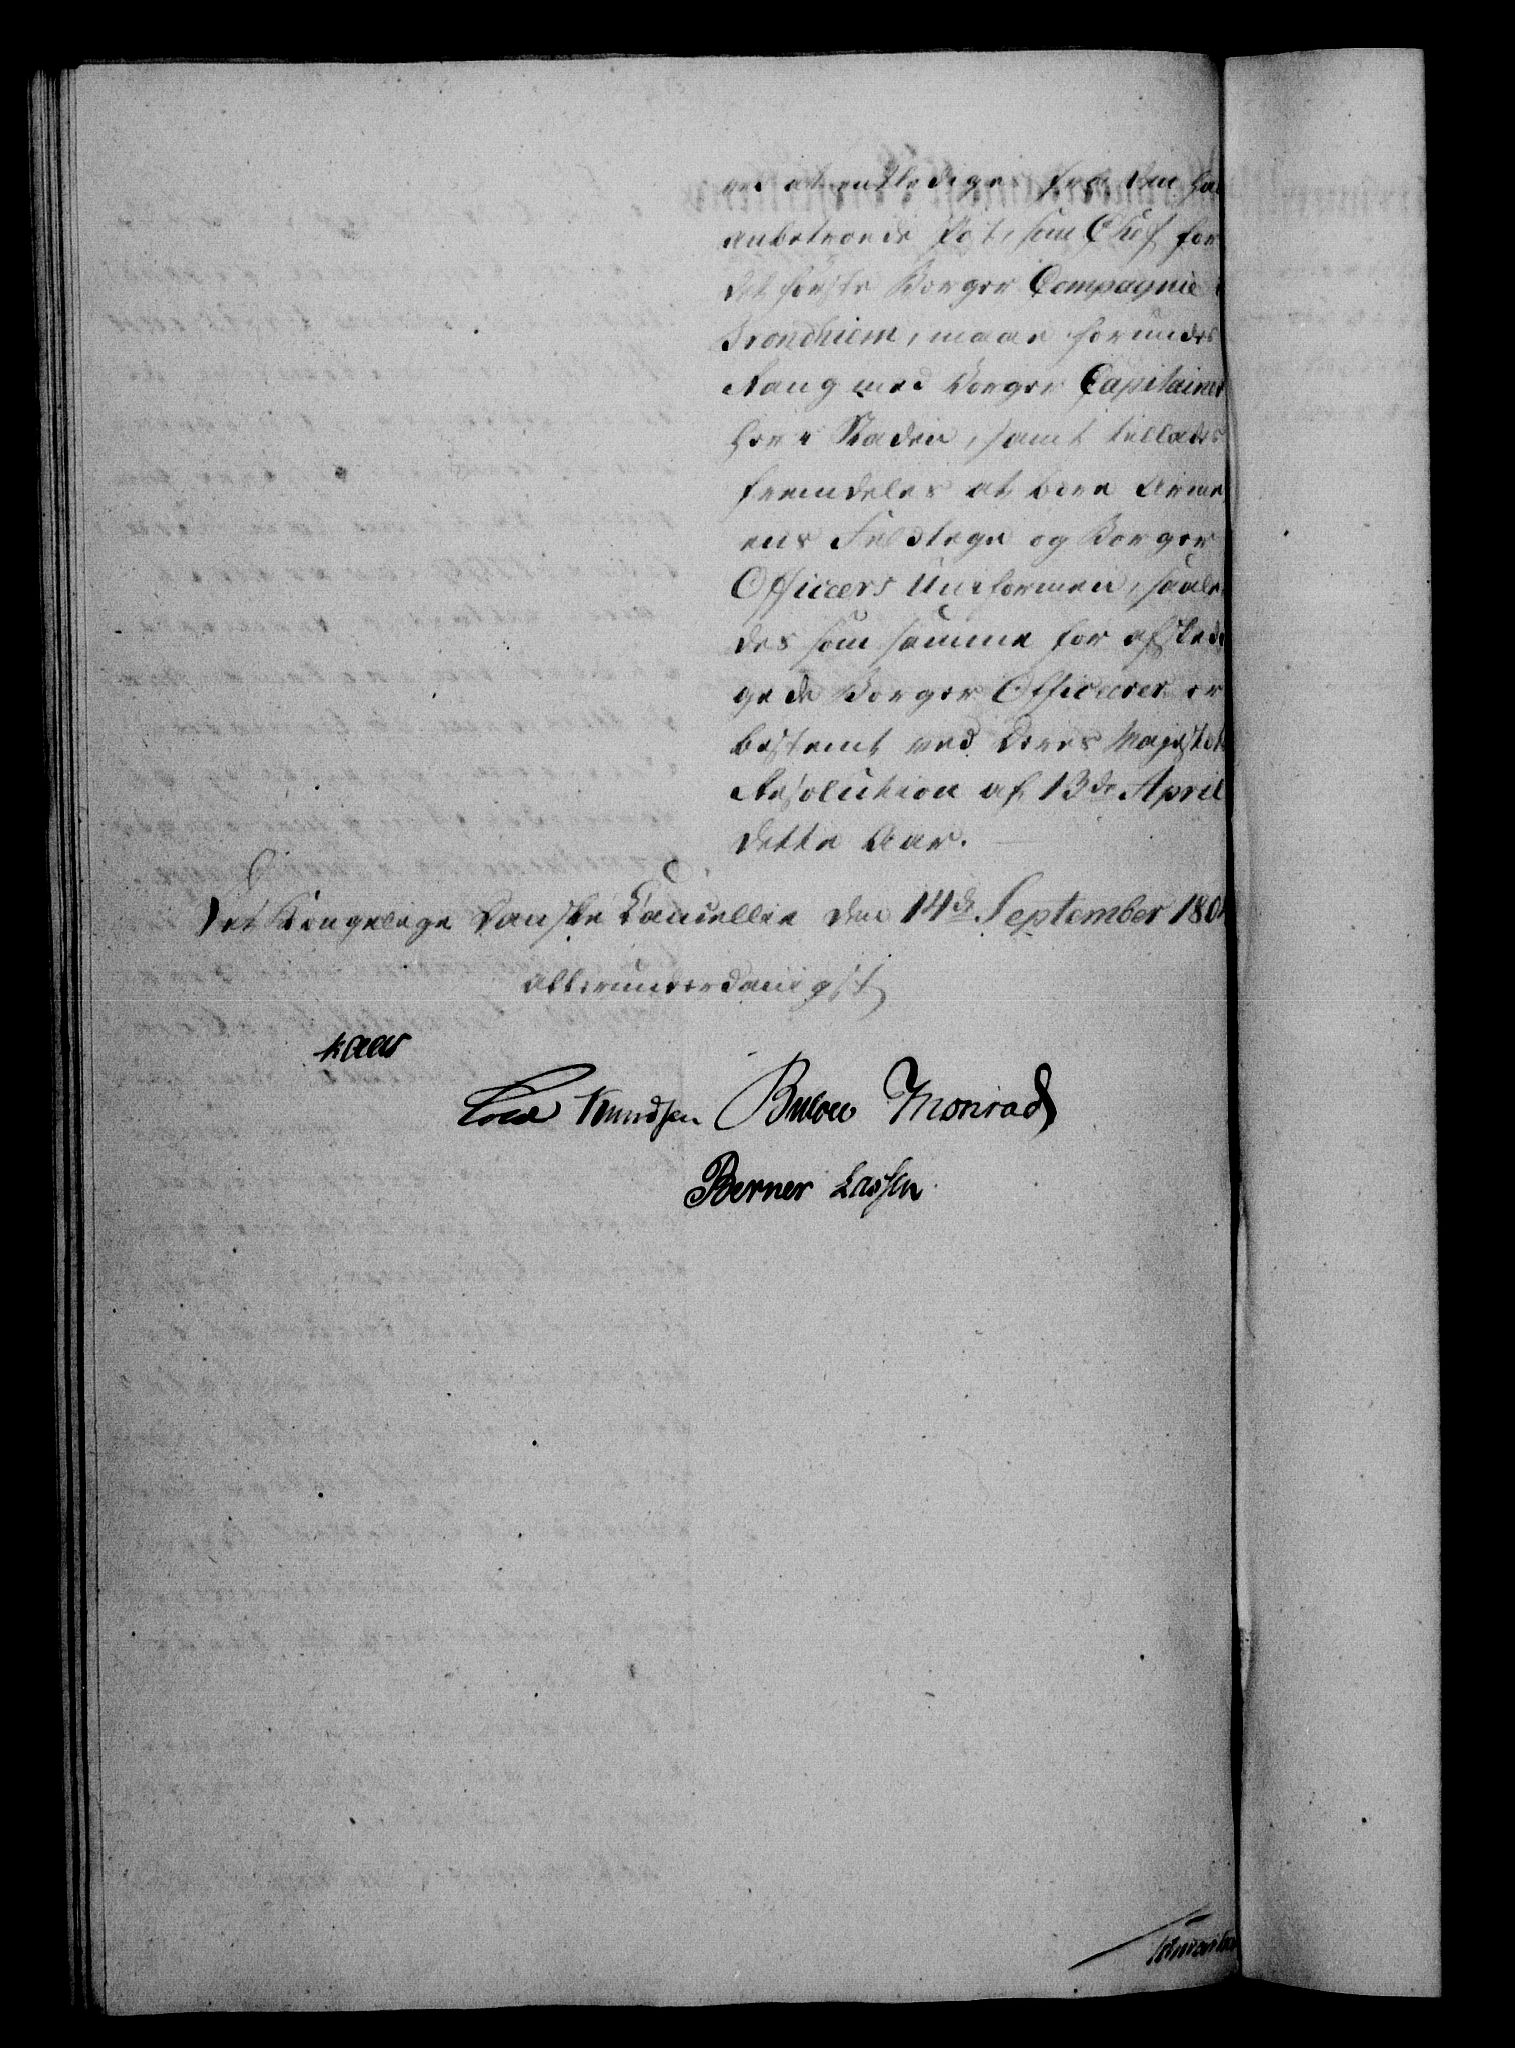 ved at entlediges fra den ham
anbetroede Post, som Chef for
det første Borger Compagnie i
Trondhiem, maae forundes
Rang med Borger Capitainer
her i Staden, samt tillades
fremdeles at bære Arme
ens Feldtegn og Borger
Officeers Uniformen, saale
des som samme for afske­di
gede Borger Officerer er
bestemt ved Deres Majestets
Resolution af 13de April
dette Aar.
Det Kongelige Danske Cancellie den 14de September 180
allerunderdanigst
Kaas
Cold Knudsen Bülow Monrad
Berner Lassen